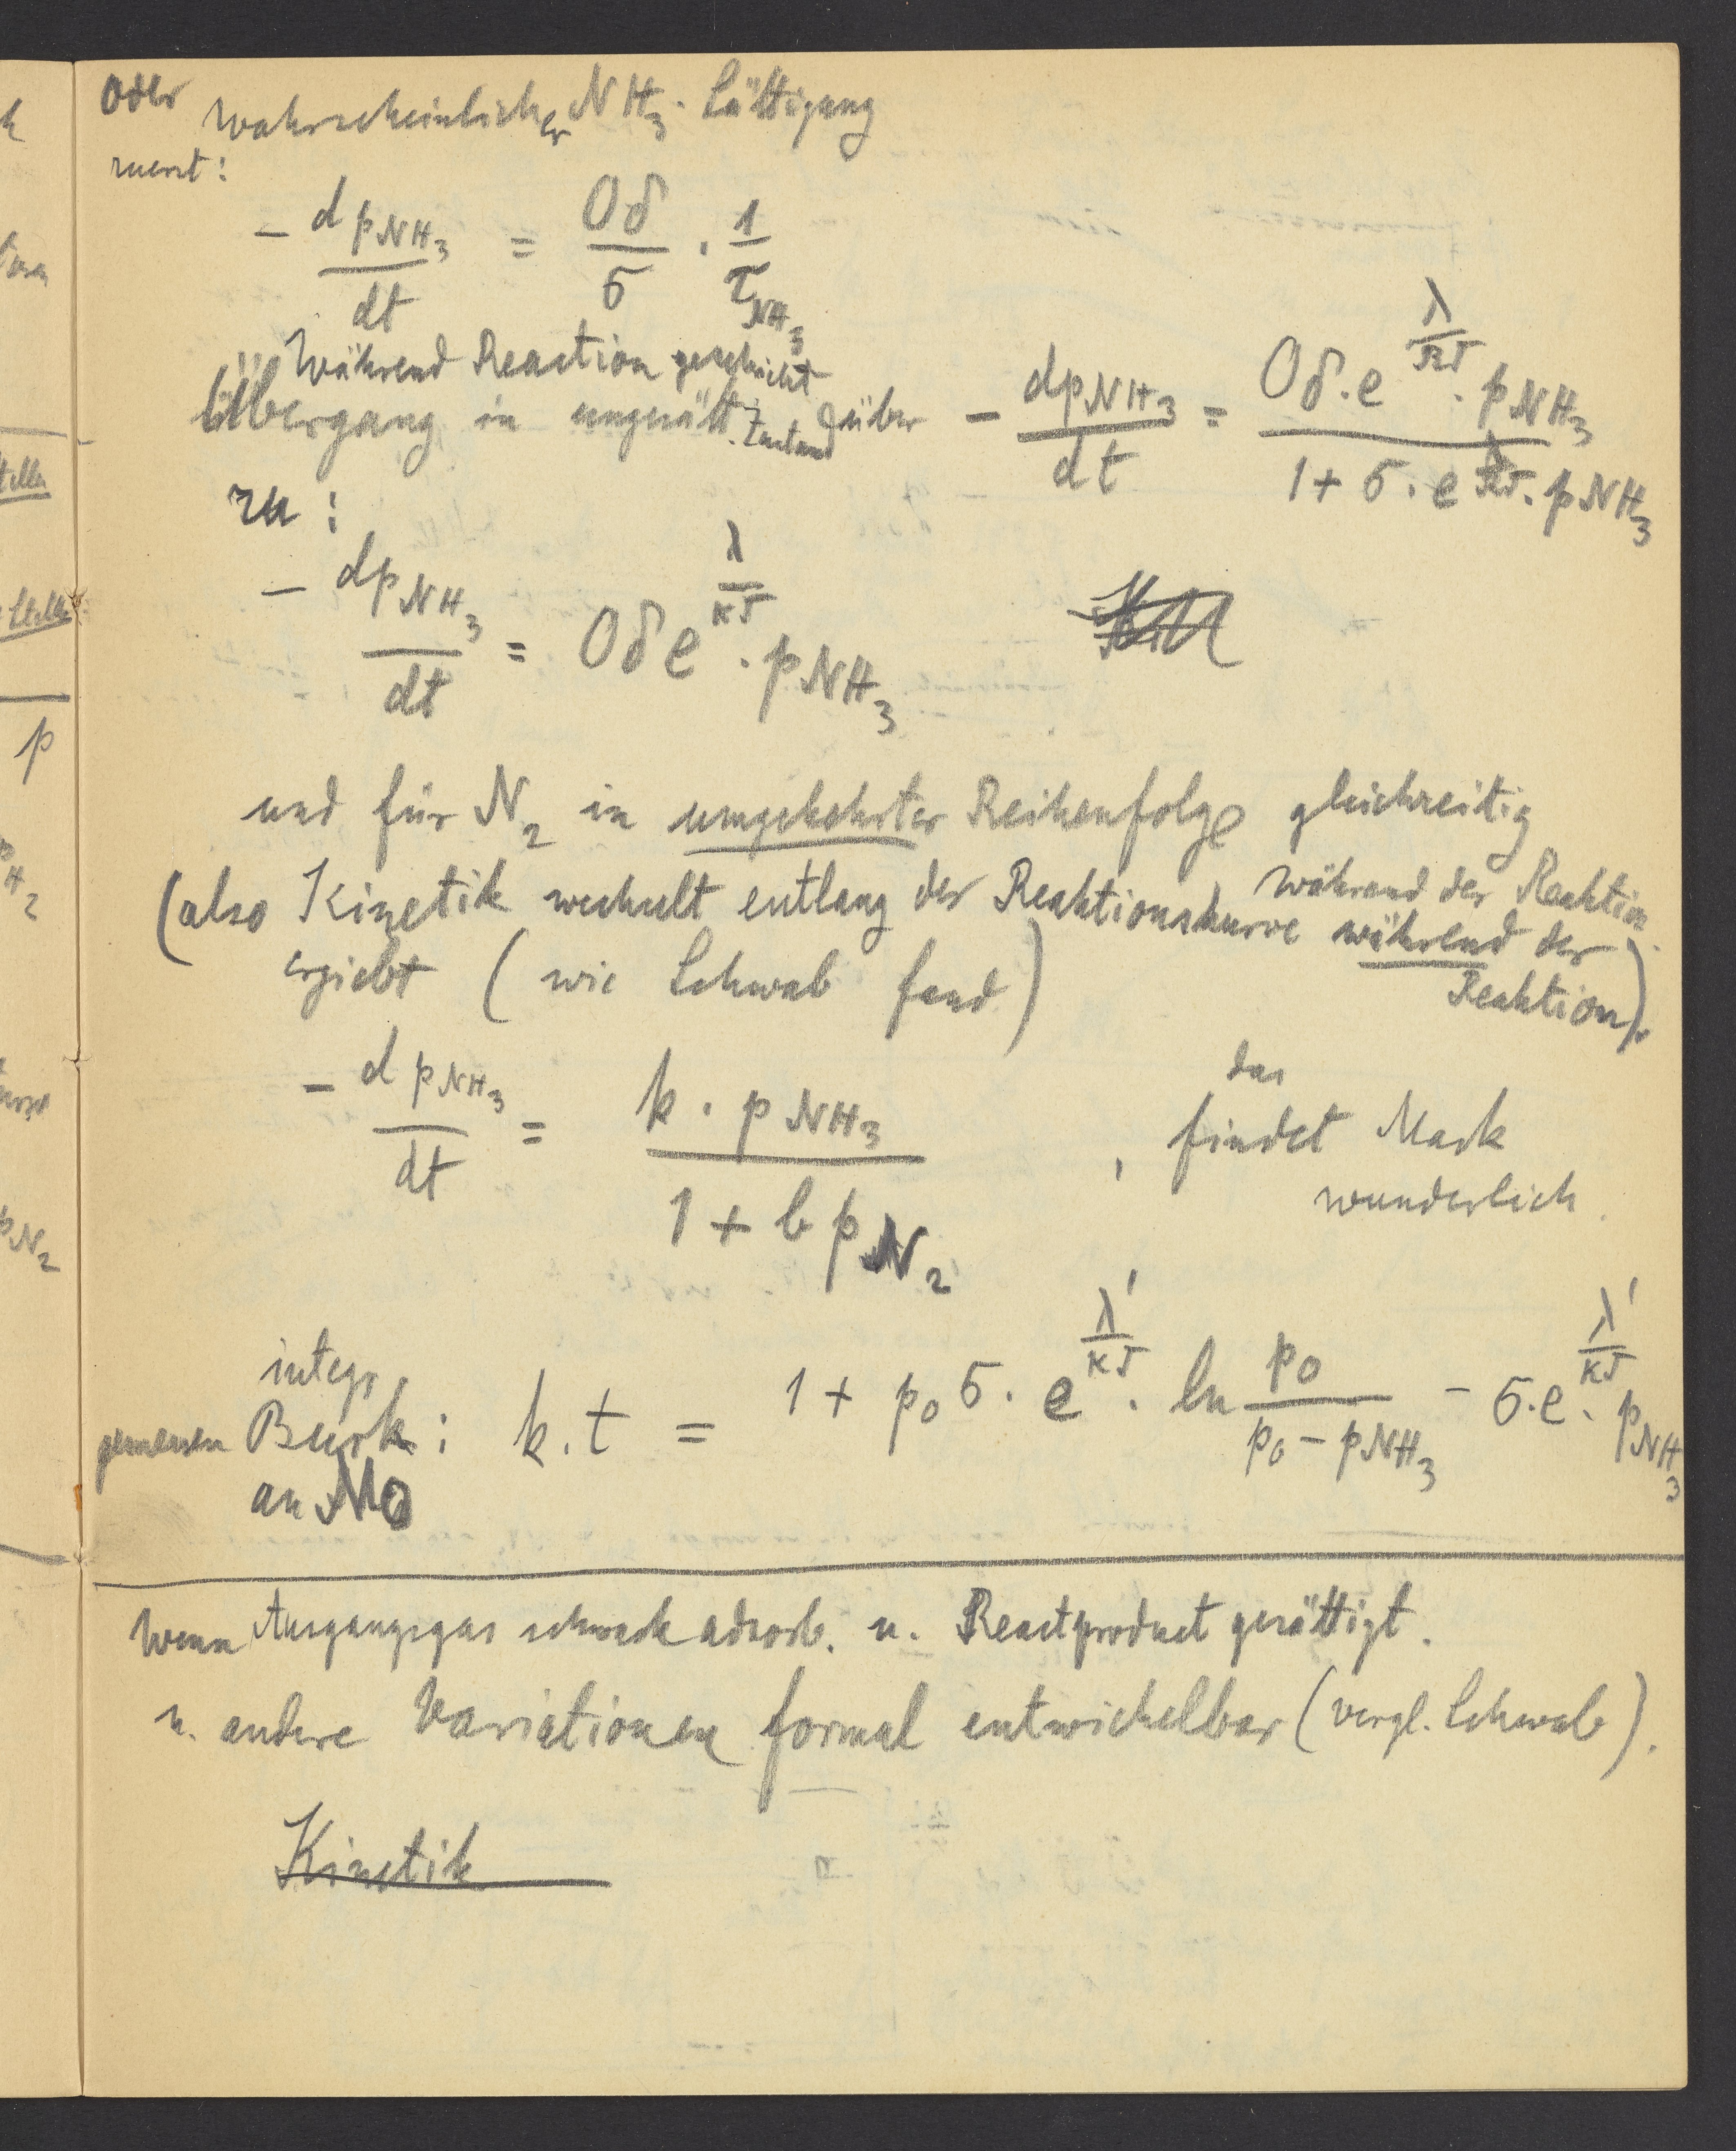 Oder wahrscheinlicher NH₃-Sättigung
zuerst:
− dp_NH₃/dt = Oδ/σ · 1/τ_NH₃
Während Reaction geschieht
Übergang in ungesätt. Zustand über − dp_NH₃/dt = (Oδ · e^(λ/RT) · p_NH₃)/(1 + σ · e^(λ/RT) · p_NH₃)
zu:
− dp_NH₃/dt = Oδe^(λ/RT) · p_NH₃
und für N₂ in umgekehrter Reihenfolge gleichzeitig
während der Reaktion
(also Kinetik wechselt entlang der Reaktionskurve während der
Reaktion).
ergiebt (wie Schwab fand)
− dp_NH₃/dt = (k · p_NH₃)/(1 + b p_N₂) , das findet Mark
wunderlich.
integr.
gemessen Burk: k.t = 1 + p₀σ · e^(λ'/RT) · ln p₀/(p₀ − p_NH₃) − σ.e^(λ'/RT) · p_NH₃
an Mo
Wenn Ausgangsgas schwach adsorb. u. Reactproduct gesättigt.
u. andere Variationen formal entwickelbar (vergl. Schwab).
Kinetik